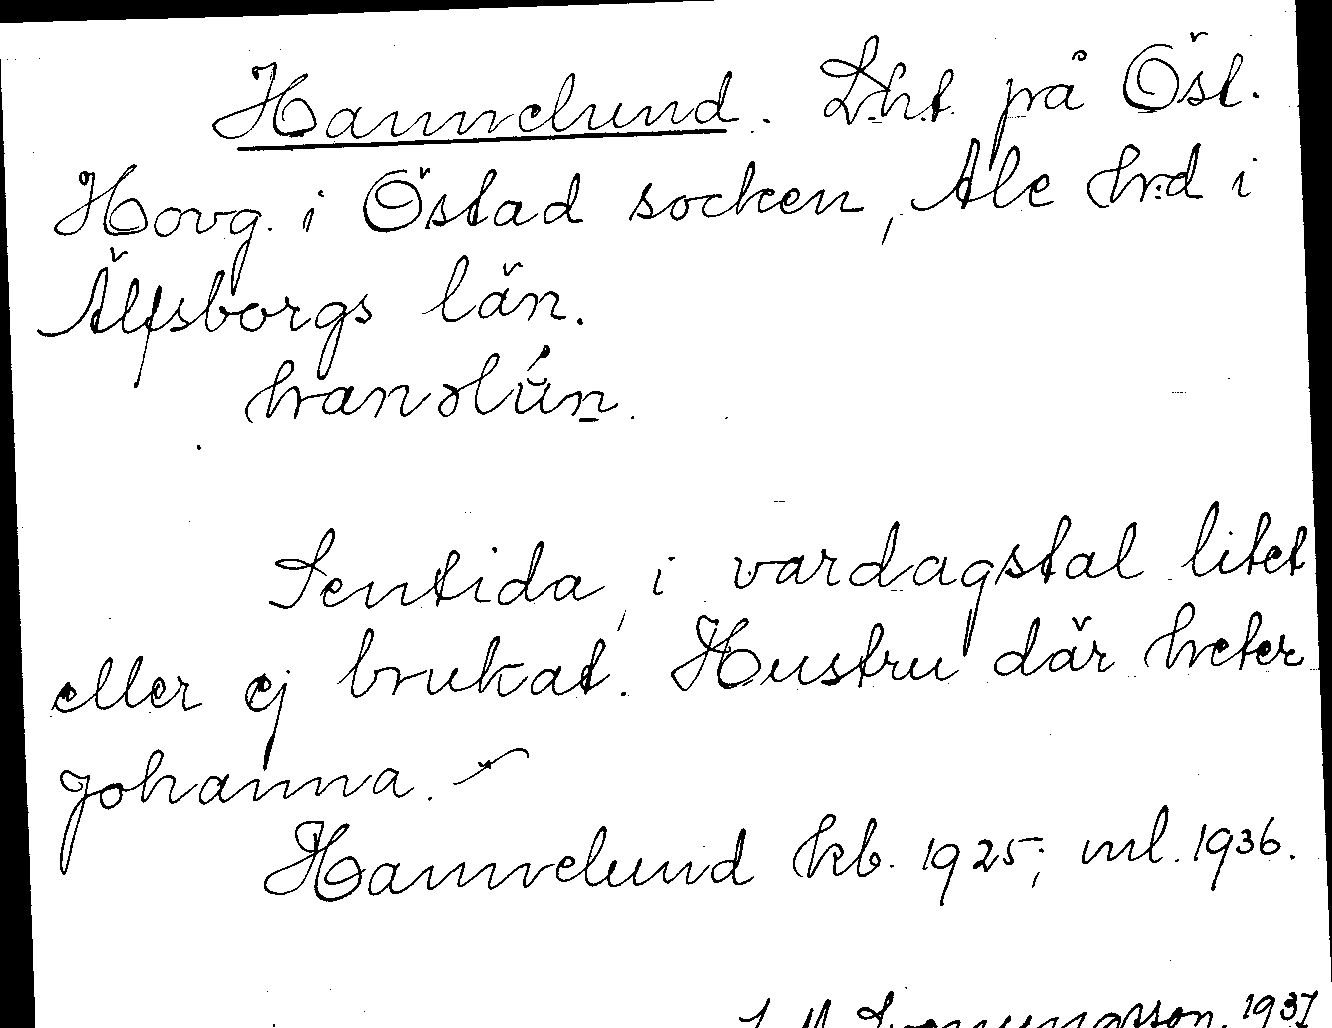 Hannelund. Lht på Öst.
Hovg. i Östad socken, Ale hrd i
Älfsborgs län.
Sentida, i vardagstal litet
eller ej brukat. Hustru där heter
Johanna.
Hannelund kb. 1925; ml. 1936.
1937